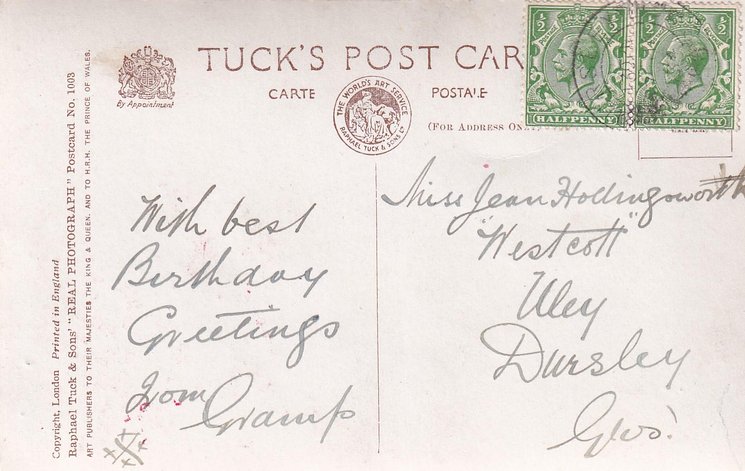 TUCK'S POST CAR
CARTE POSTALE
(FOR ADDRESS ONLY
By Appointment
THE WORLD'S ART SERVICE
RAPHAEL TUCK & SONS LTD
1/2 1/2
HALFPENNY
1/2 1/2
HALFPENNY
Copyright, London Printed in England
Raphael Tuck & Sons' "REAL PHOTOGRAPH" Postcard No. 1003
ART PUBLISHERS TO THEIR MAJESTIES THE KING & QUEEN, AND TO H.R.H. THE PRINCE OF WALES.
With best
Birthday
Greetings
from
Gramp
Miss Jean Hollingsworth
"Westcott"
Uley
Dursley
Glos.